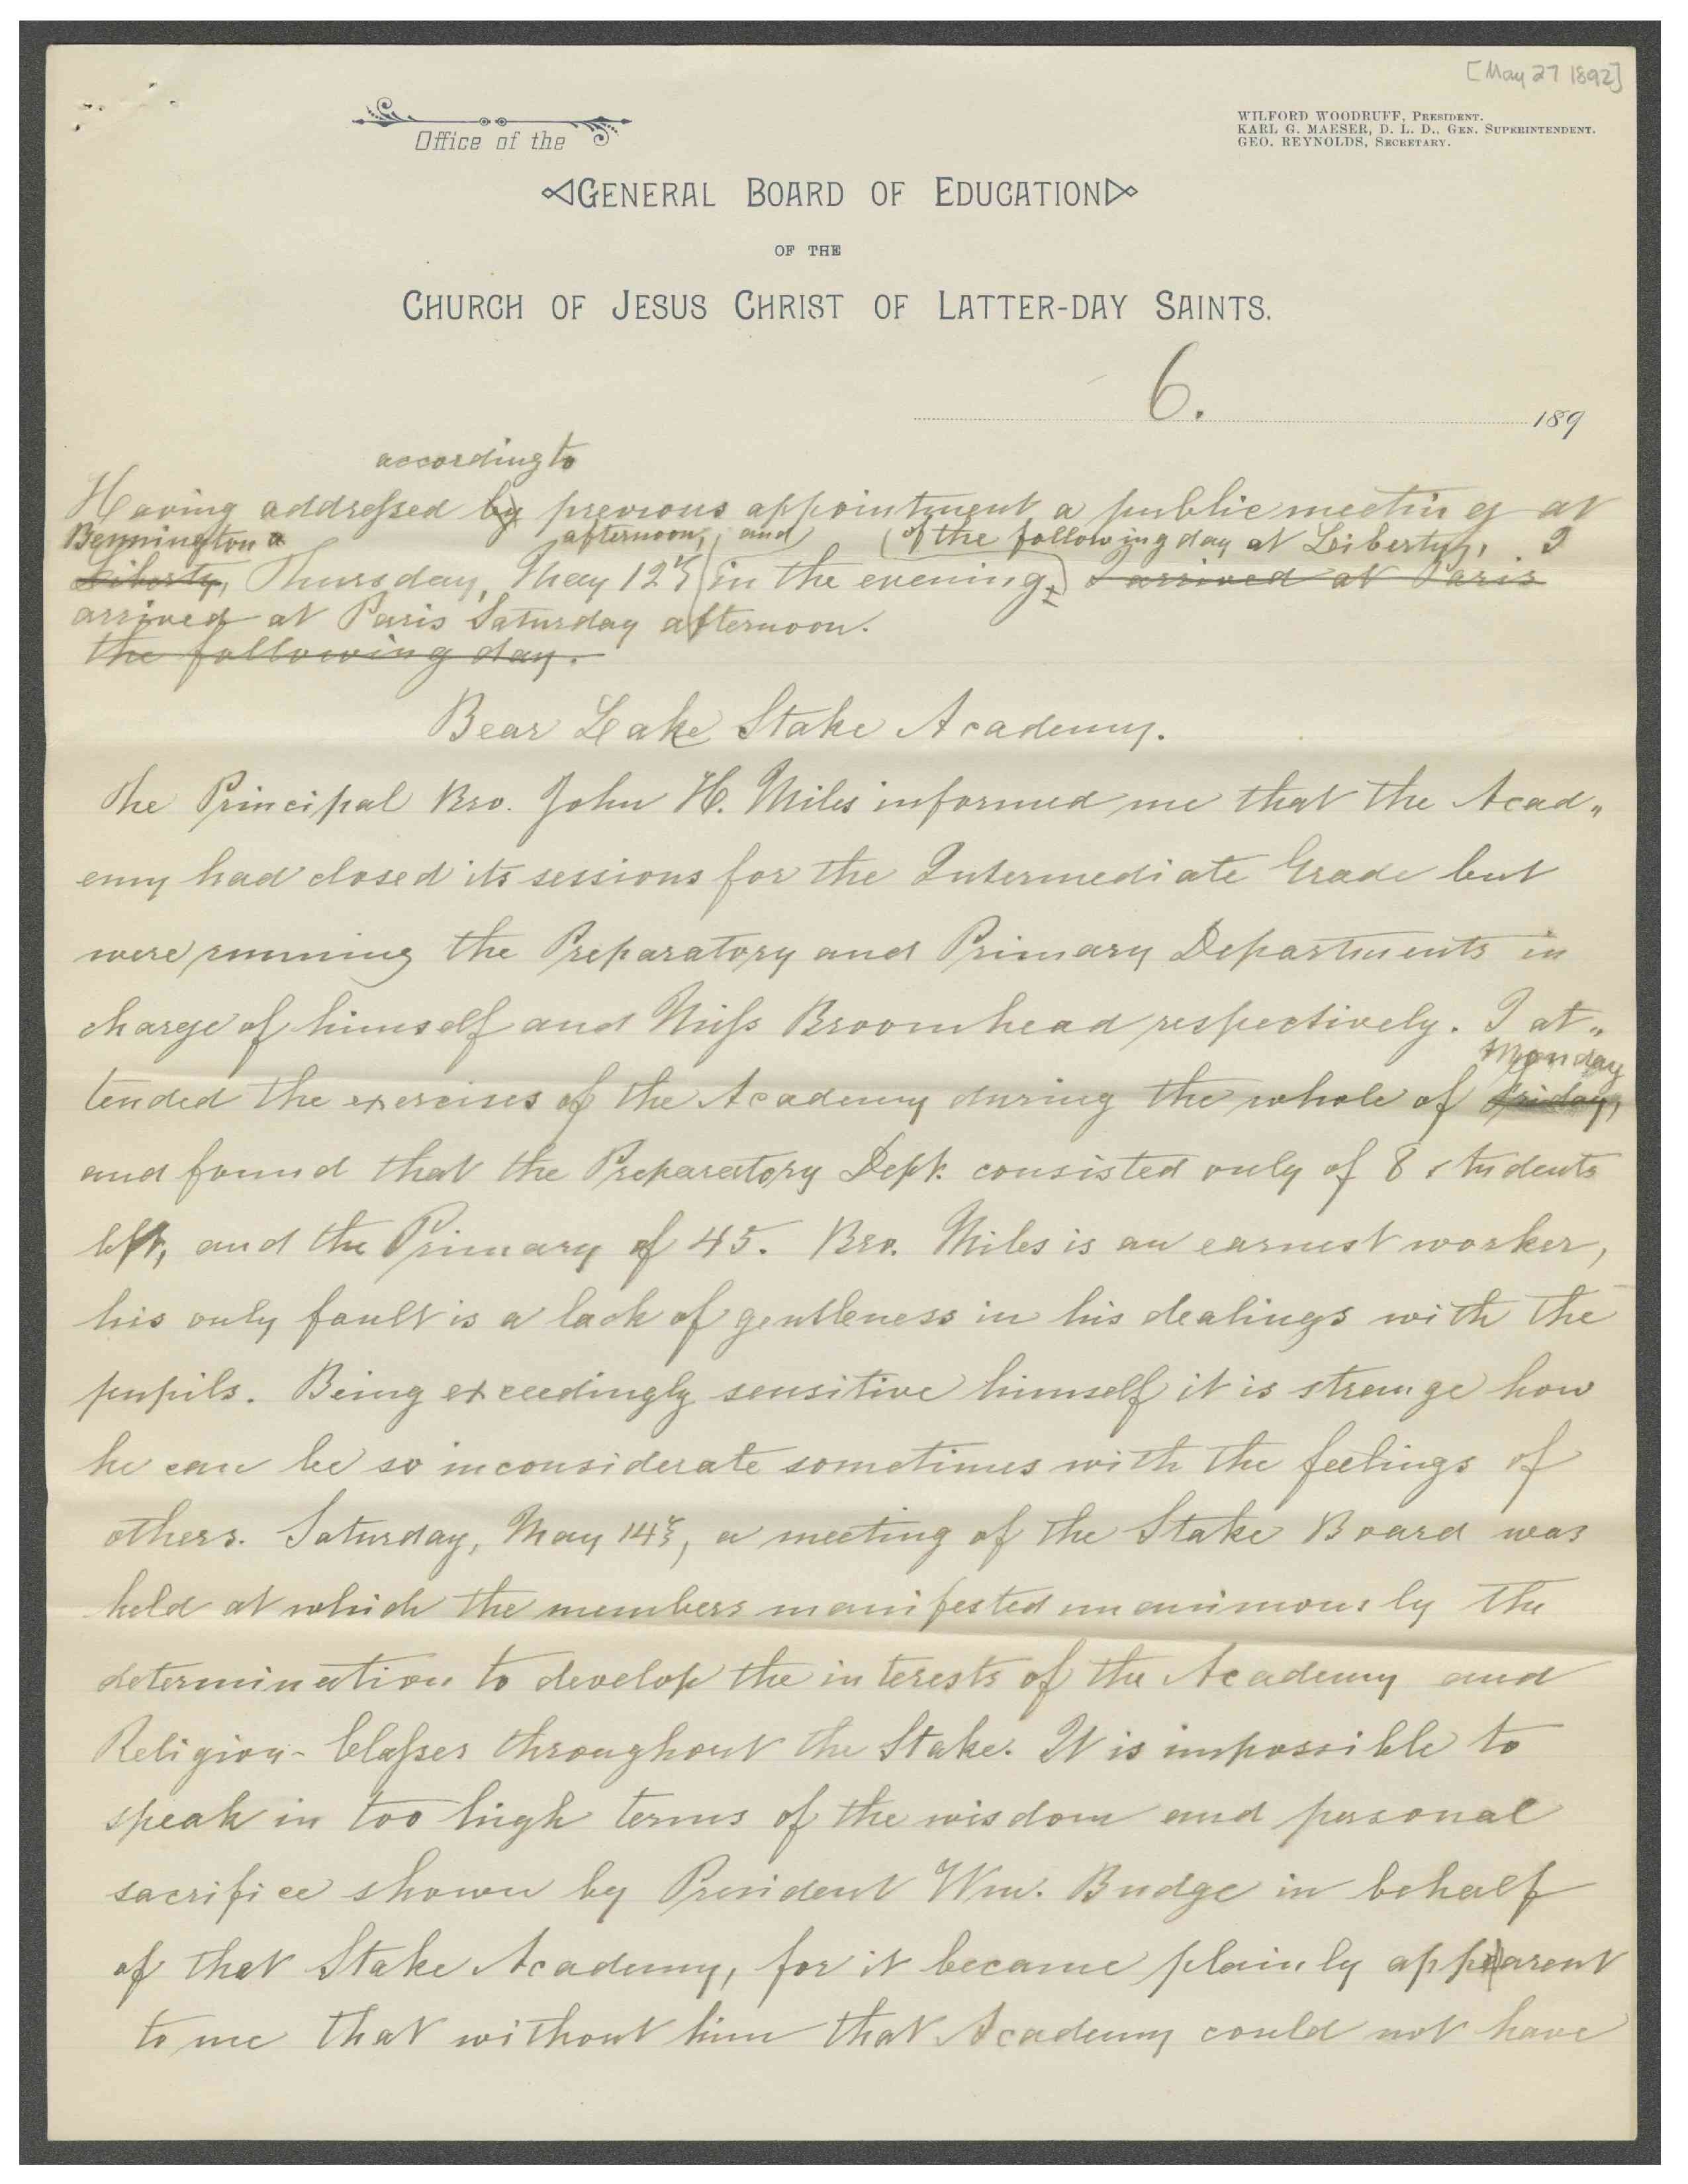 [May 27 1892]
WILFORD WOODRUFF, PRESIDENT.
KARL G. MAESER, D. L. D., GEN. SUPERINTENDENT.
GEO. REYNOLDS, SECRETARY.
Office of the
GENERAL BOARD OF EDUCATION
OF THE
CHURCH OF JESUS CHRIST OF LATTER-DAY SAINTS.
6.
189
according to
Having addressed by previous appointment a public meeting at
Bennington afternoon, and (of the following day at Liberty, I
Liberty, Thursday, May 12th in the evening. I arrived at Paris
arrived at Paris Saturday afternoon.
the following day.
Bear Lake Stake Academy.
The Principal Bro. John H. Miles informed me that the Acad„
emy had closed its sessions for the Intermediate Grade but
were running the Preparatory and Primary Departments in
charge of himself and Miss Broomhead respectively. I at„
Monday
tended the exercises of the Academy during the whole of Friday,
and found that the Preparatory Dept. consisted only of 8 students
left, and the Primary of 45. Bro. Miles is an earnest worker,
his only fault is a lack of gentleness in his dealings with the
pupils. Being exceedingly sensitive himself it is strange how
he can be so inconsiderate sometimes with the feelings of
others. Saturday, May 14th, a meeting of the Stake Board was
held at which the members manifested unanimously the
determination to develop the interests of the Academy and
Religion-Classes throughout the Stake. It is impossible to
speak in too high terms of the wisdom and personal
sacrifice shown by President Wm. Budge in behalf
of that Stake Academy, for it became plainly apparent
to me that without him that Academy could not have